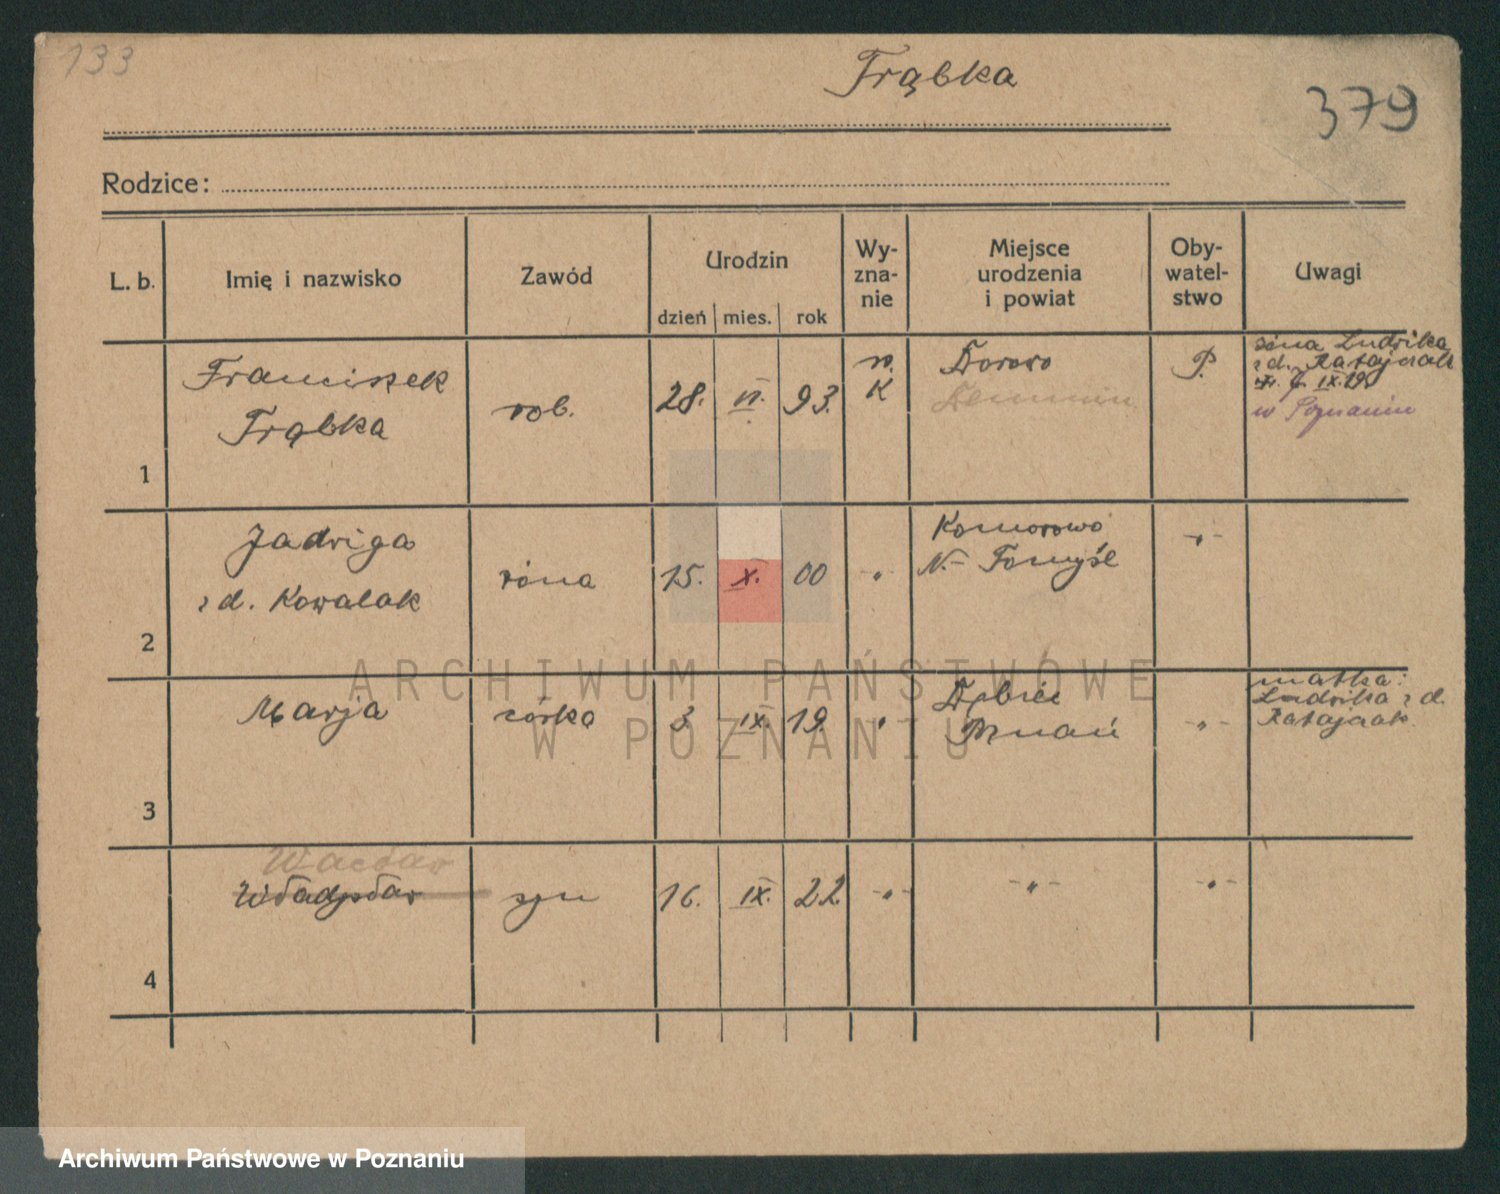 133
Trąbka
379
Rodzice:
L. b.
Imię i nazwisko
Zawód
Urodzin
dzień mies. rok
Wy-
zna-
nie
Miejsce
urodzenia
i powiat
Oby-
watel-
stwo
Uwagi
1
Franciszek
Trąbka
rob.
28. VI. 93.
K
P.
żona Ludwika
z d. Ratajczak
7. IX. 19
w Poznaniu
2
Jadwiga
z d. Kowalak
żona
15. X. 00
"
Komorowo
N.- Tomyśl
-"-
3
Marja
córka
3. IX. 19.
"
Dębiec
Poznań
-"-
matka:
Ludwika z d.
Ratajczak
4
Wacław
Władysław
syn
16. IX. 22
-"-
-"-
-"-
ARCHIWUM PAŃSTWOWE
W POZNANIU
Archiwum Państwowe w Poznaniu